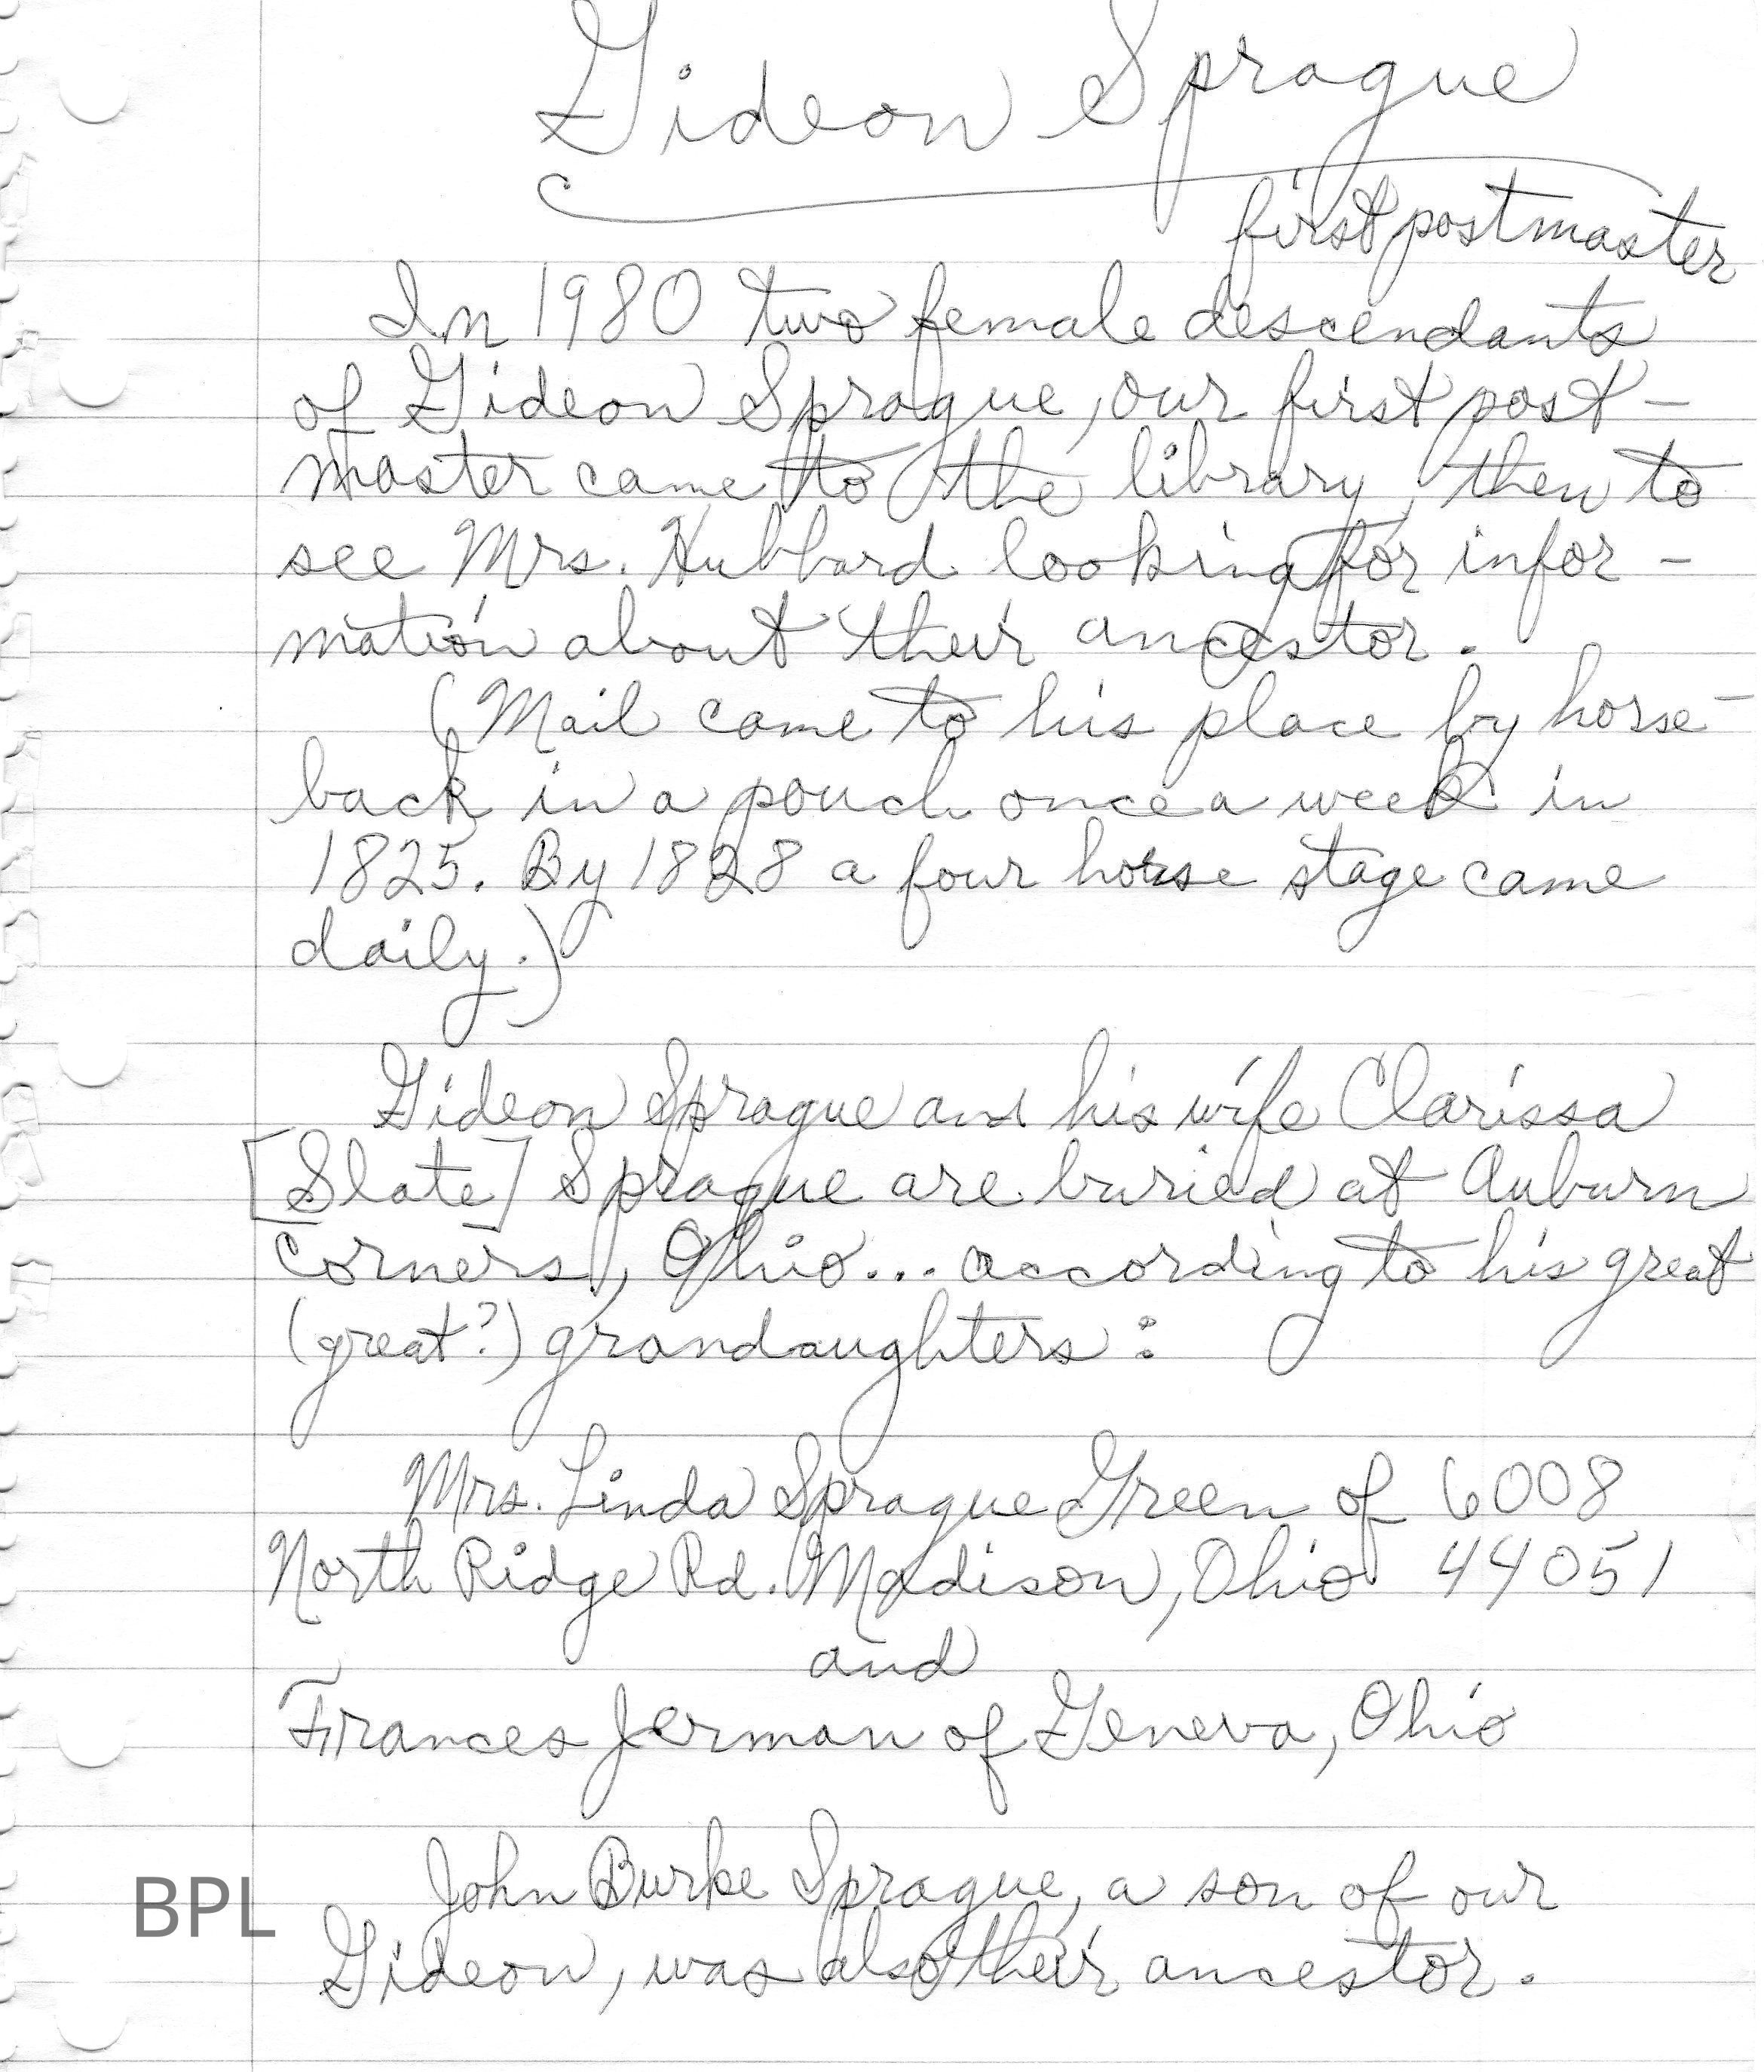 Gideon Sprague
first postmaster
In 1980 two female descendants
of Gideon Sprague, our first post-
master came to the library, then to
see Mrs. Hubbard looking for infor-
mation about their ancestor.
(Mail came to his place by horse-
back in a pouch once a week in
1825. By 1828 a four horse stage came
daily.)
Gideon Sprague and his wife Clarissa
[Slate] Sprague are buried at Auburn
Corners, Ohio... according to his great
(great?) grandaughters:
Mrs. Linda Sprague Green of 6008
North Ridge Rd. Madison, Ohio 44051
and
Frances Jerman of Geneva, Ohio
John Burke Sprague, a son of our
Gideon, was also their ancestor.
BPL